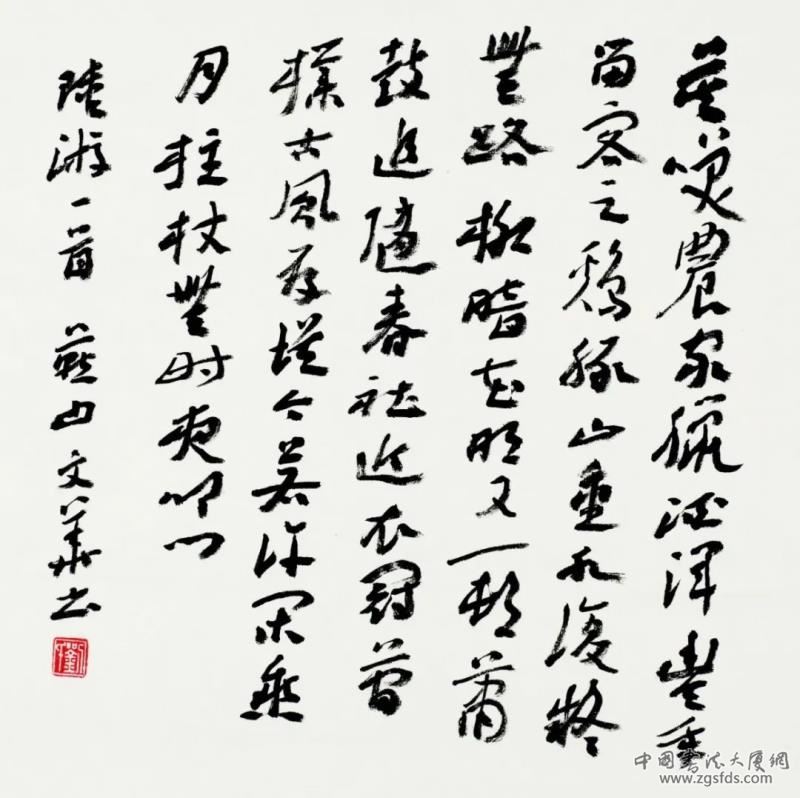 莫笑農家臘酒渾豐年
留客足鷄豚山重水復疑
無路柳暗花明又一村簫
鼓追隨春社近衣冠簡
樸古風存從今若許閑乘
月拄杖無时夜叩门
陸游一首 燕山文華书
中國書法大廈網
www.zgsfds.com